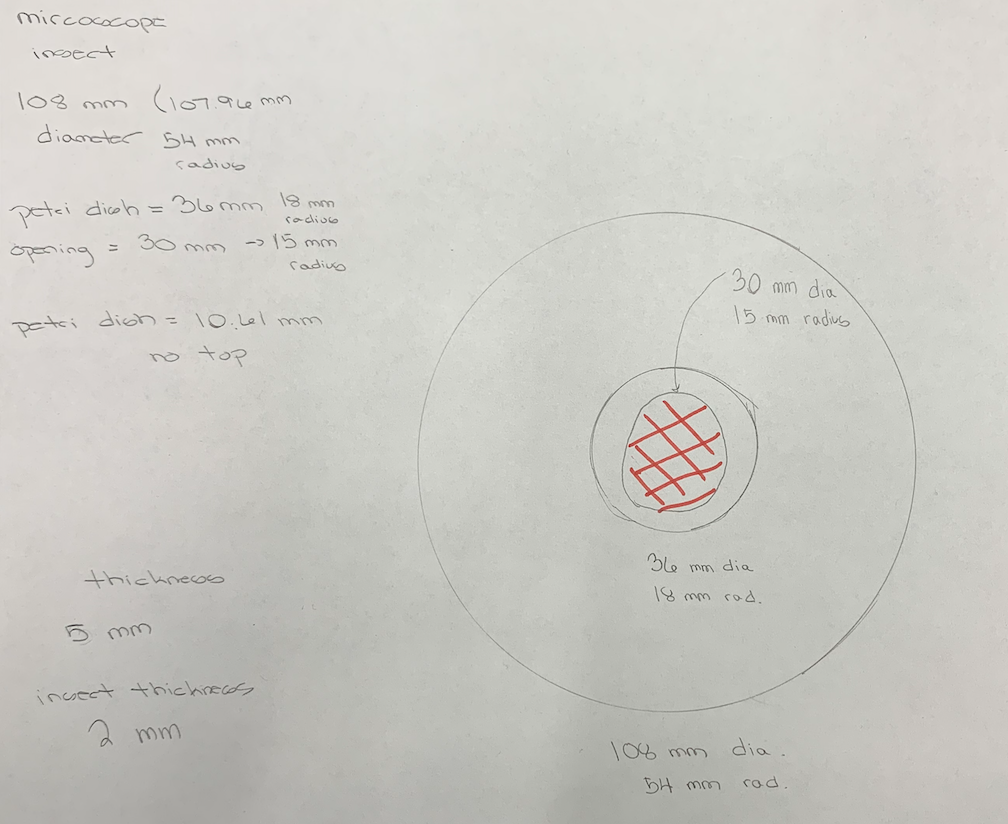 mircococope
insect
108 mm (107.96 mm
diameter 54 mm
radius
petri dish = 36 mm 18 mm
radius
opening = 30 mm -> 15 mm
radius
petri dish = 10.61 mm
no top
thickness
5 mm
insect thickness
2 mm
30 mm dia
15 mm radius
36 mm dia
18 mm rad.
108 mm dia.
54 mm rad.